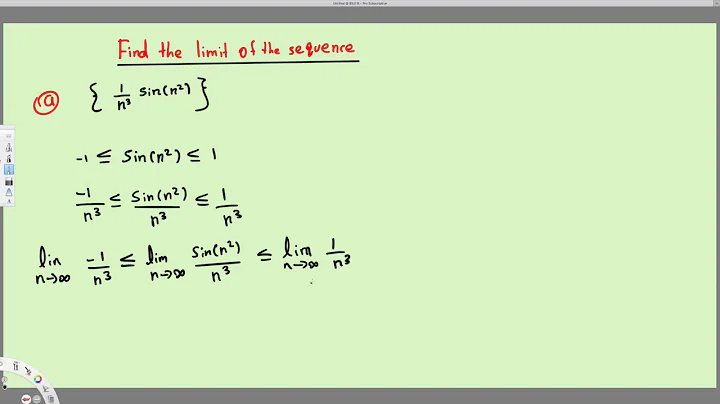 Find the limit of the sequence
(a) { 1/n³ sin(n²) }
-1 ≤ sin(n²) ≤ 1
-1/n³ ≤ sin(n²)/n³ ≤ 1/n³
lim n→∞ -1/n³ ≤ lim n→∞ sin(n²)/n³ ≤ lim n→∞ 1/n³